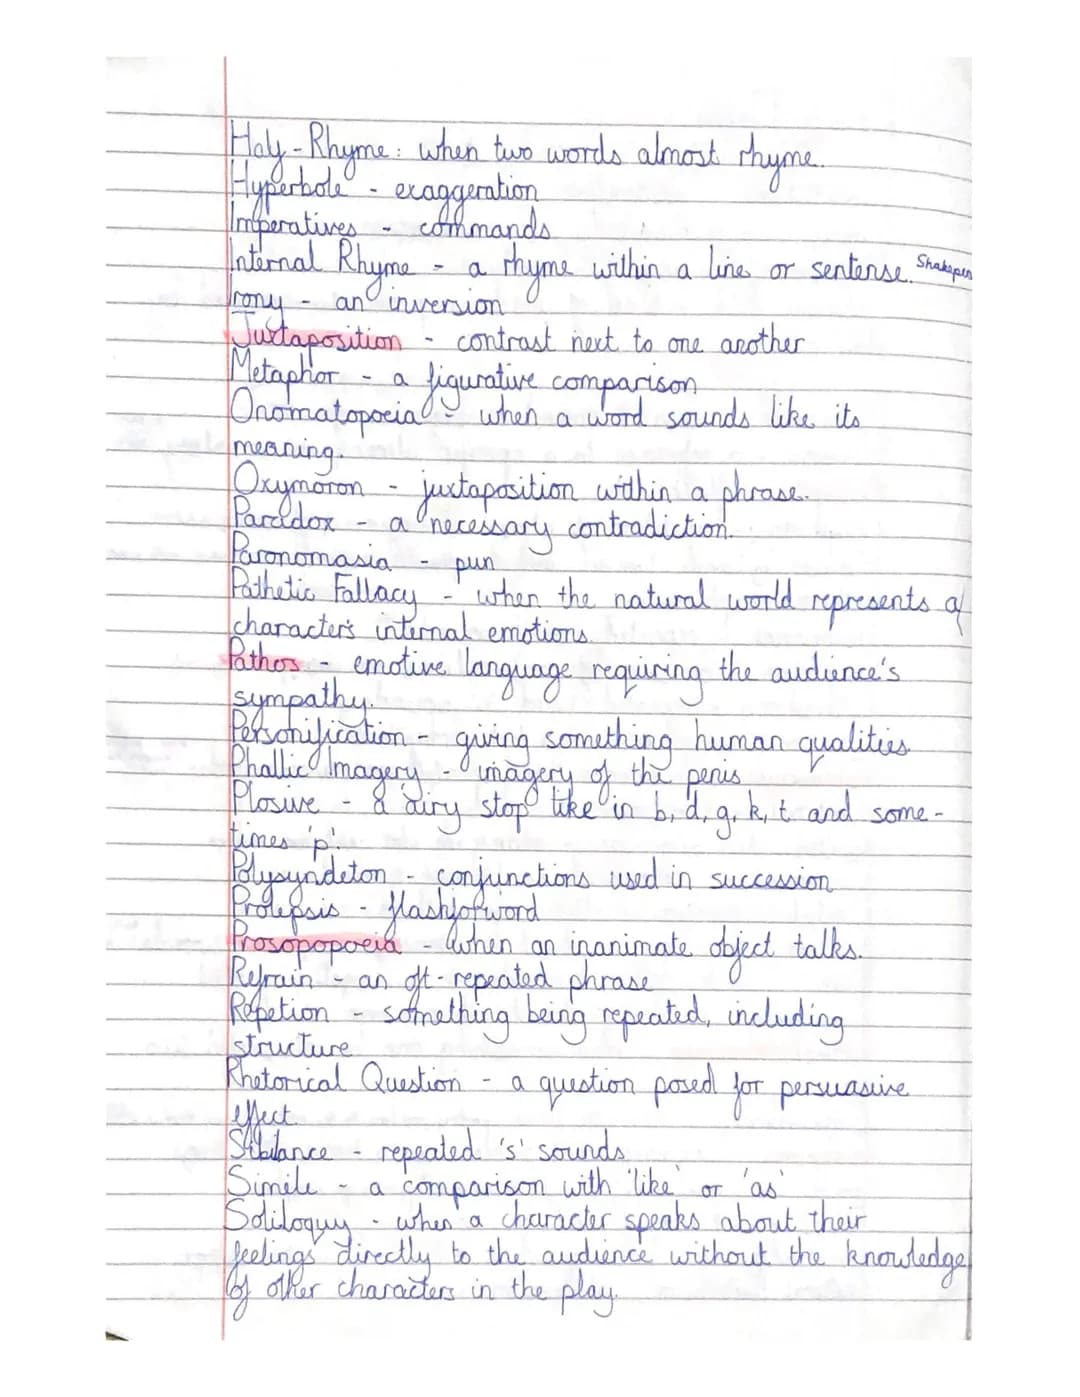 Half-Rhyme: when two words almost rhyme.
Hyperbole - exaggeration
Imperatives - commands
Internal Rhyme - a rhyme within a line or sentense. Shakspea
Irony - an inversion
Juxtaposition - contrast next to one another
Metaphor - a figurative comparison
Onomatopoeia - when a word sounds like its
meaning.
Oxymoron - juxtaposition within a phrase.
Paradox - a necessary contradiction.
Paronomasia - pun
Pathetic Fallacy - when the natural world represents a
character's internal emotions.
Pathos - emotive language requiring the audience's
sympathy.
Personification - giving something human qualities.
Phallic Imagery - imagery of the penis
Plosive - a airy stop like in b, d, g, k, t and some-
times 'p'.
Polysyndeton - conjunctions used in succession
Prolepsis - flashforword
Prosopopoeia - when an inanimate object talks.
Refrain - an oft-repeated phrase
Repetion - something being repeated, including
structure
Rhetorical Question - a question posed for persuasive
effect.
Sibilance - repeated 's' sounds
Simile - a comparison with 'like' or 'as'
Soliloquy - when a character speaks about their
feelings directly to the audience without the knowledge
of other characters in the play.